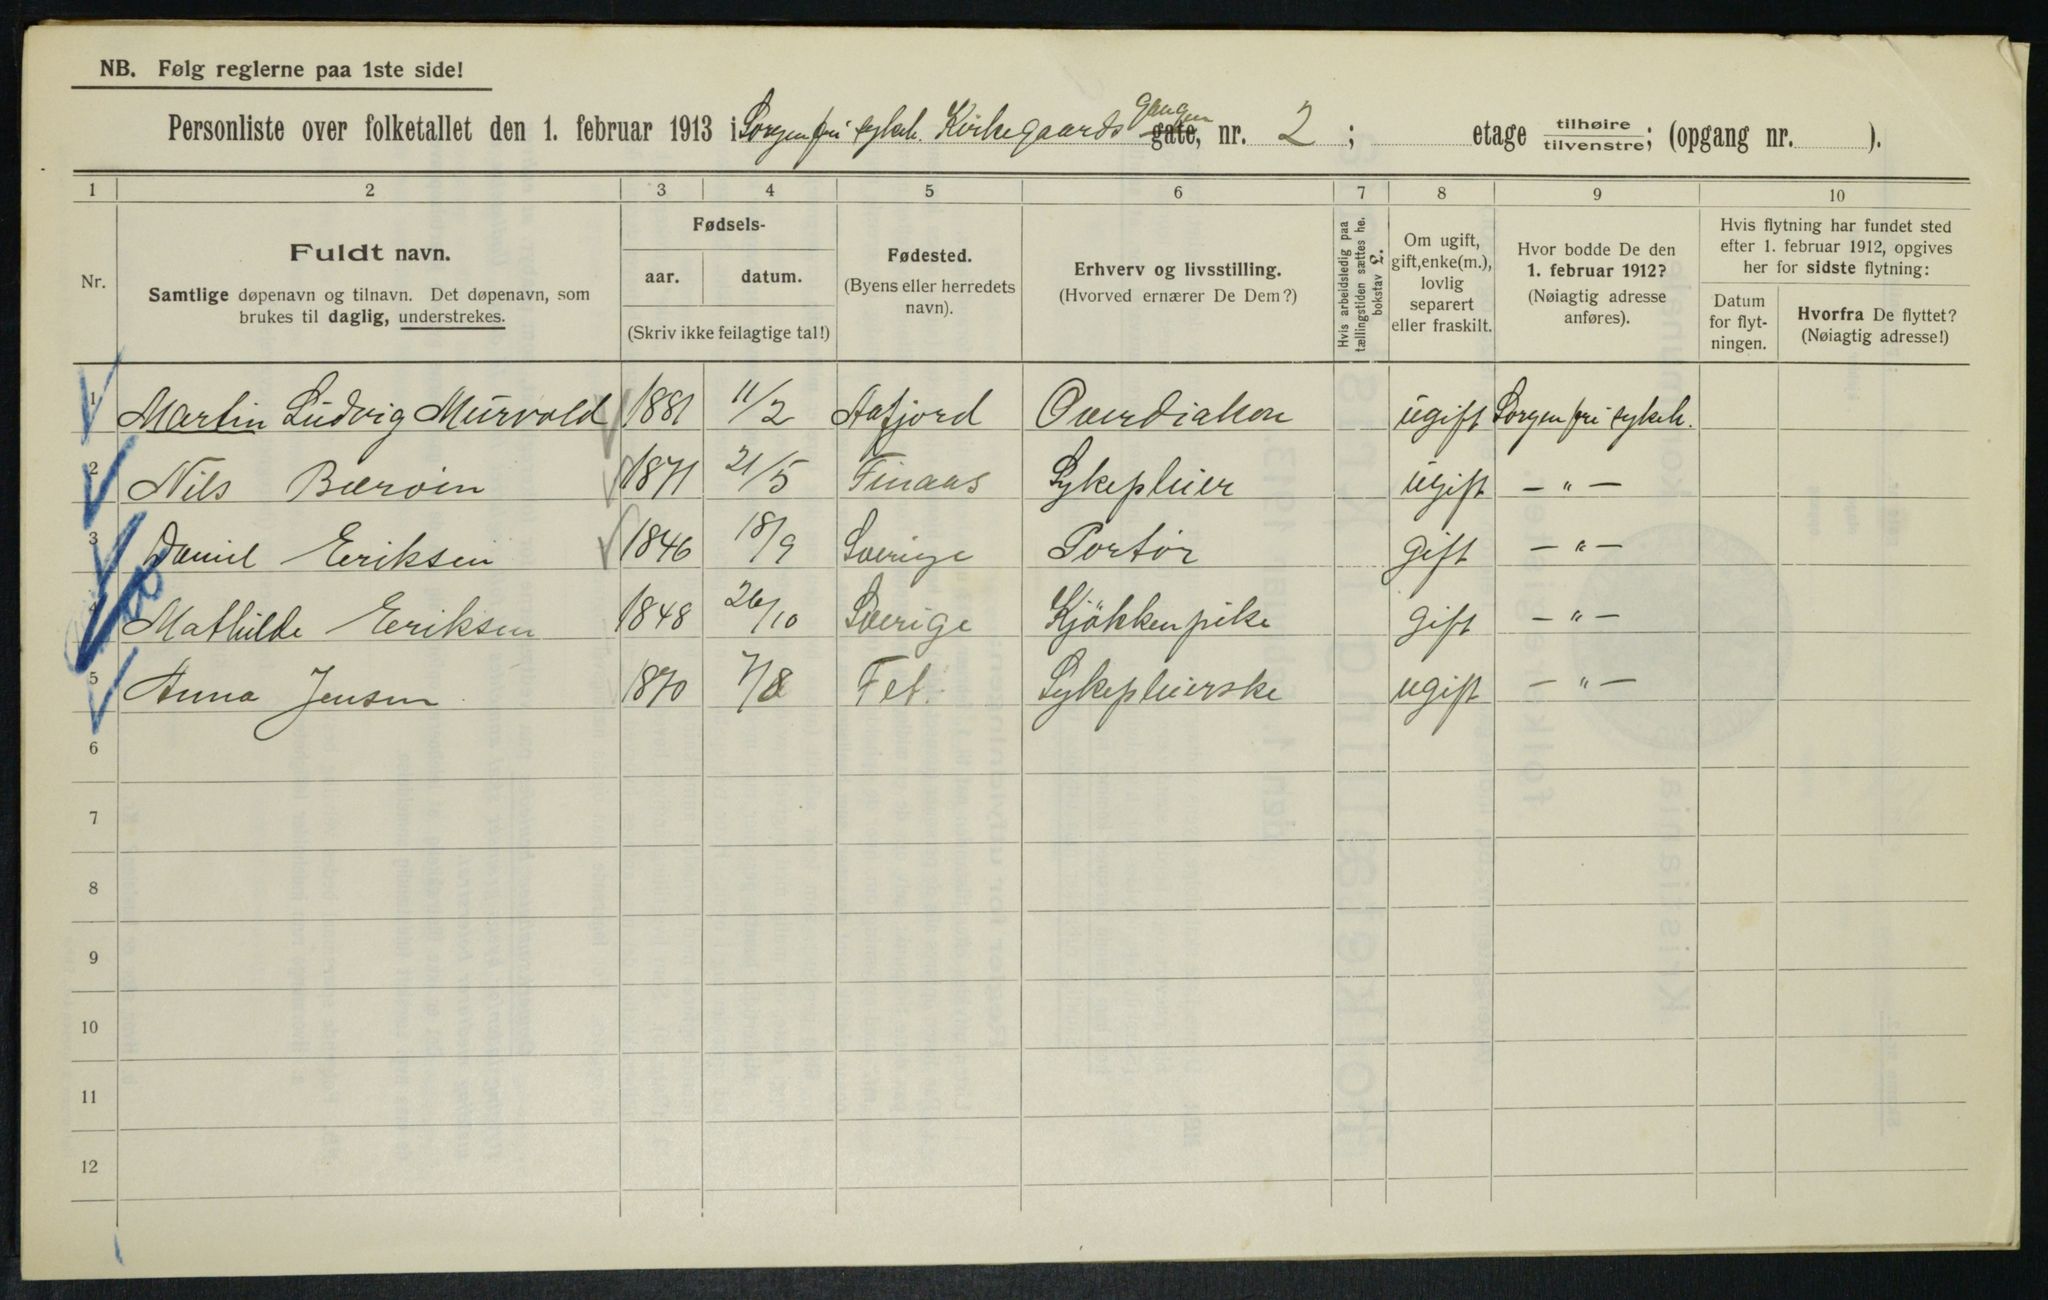 NB. Følg reglerne paa 1ste side!
Personliste over folketallet den 1. februar 1913 i Sorgenfri sykeh. Kirkegaards gangen gate, nr. 2 ; etage tilhøire tilvenstre; (opgang nr. ).
1 2 3 4 5 6 7 8 9 10
Nr.
Fuldt navn.
Samtlige døpenavn og tilnavn. Det døpenavn, som
brukes til daglig, understrekes.
Fødsels-
aar. datum.
(Skriv ikke feilagtige tal!)
Fødested.
(Byens eller herredets
navn).
Erhverv og livsstilling.
(Hvorved ernærer De Dem?)
Hvis arbeidsledig paa
tællingstiden sættes he.
bokstav L.
Om ugift,
gift, enke(m.),
lovlig
separert
eller fraskilt.
Hvor bodde De den
1. februar 1912?
(Nøiagtig adresse
anføres).
Hvis flytning har fundet sted
efter 1. februar 1912, opgives
her for sidste flytning:
Datum
for flyt-
ningen.
Hvorfra De flyttet?
(Nøiagtig adresse!)
1 Martin Ludvig Murvold 1881 11/2 Aafjord Overdiakon ugift Sorgenfri sykeh.
2 Nils Bærøen 1871 21/5 Finaas Sykepleier ugift — " —
3 Daniel Eriksen 1846 18/9 Sverige Portør gift — " —
4 Mathilde Eriksen 1848 26/10 Sverige Kjökkenpike gift — " —
5 Anna Jensen 1870 7/8 Fet. Sykepleierske ugift — " —
6
7
8
9
10
11
12